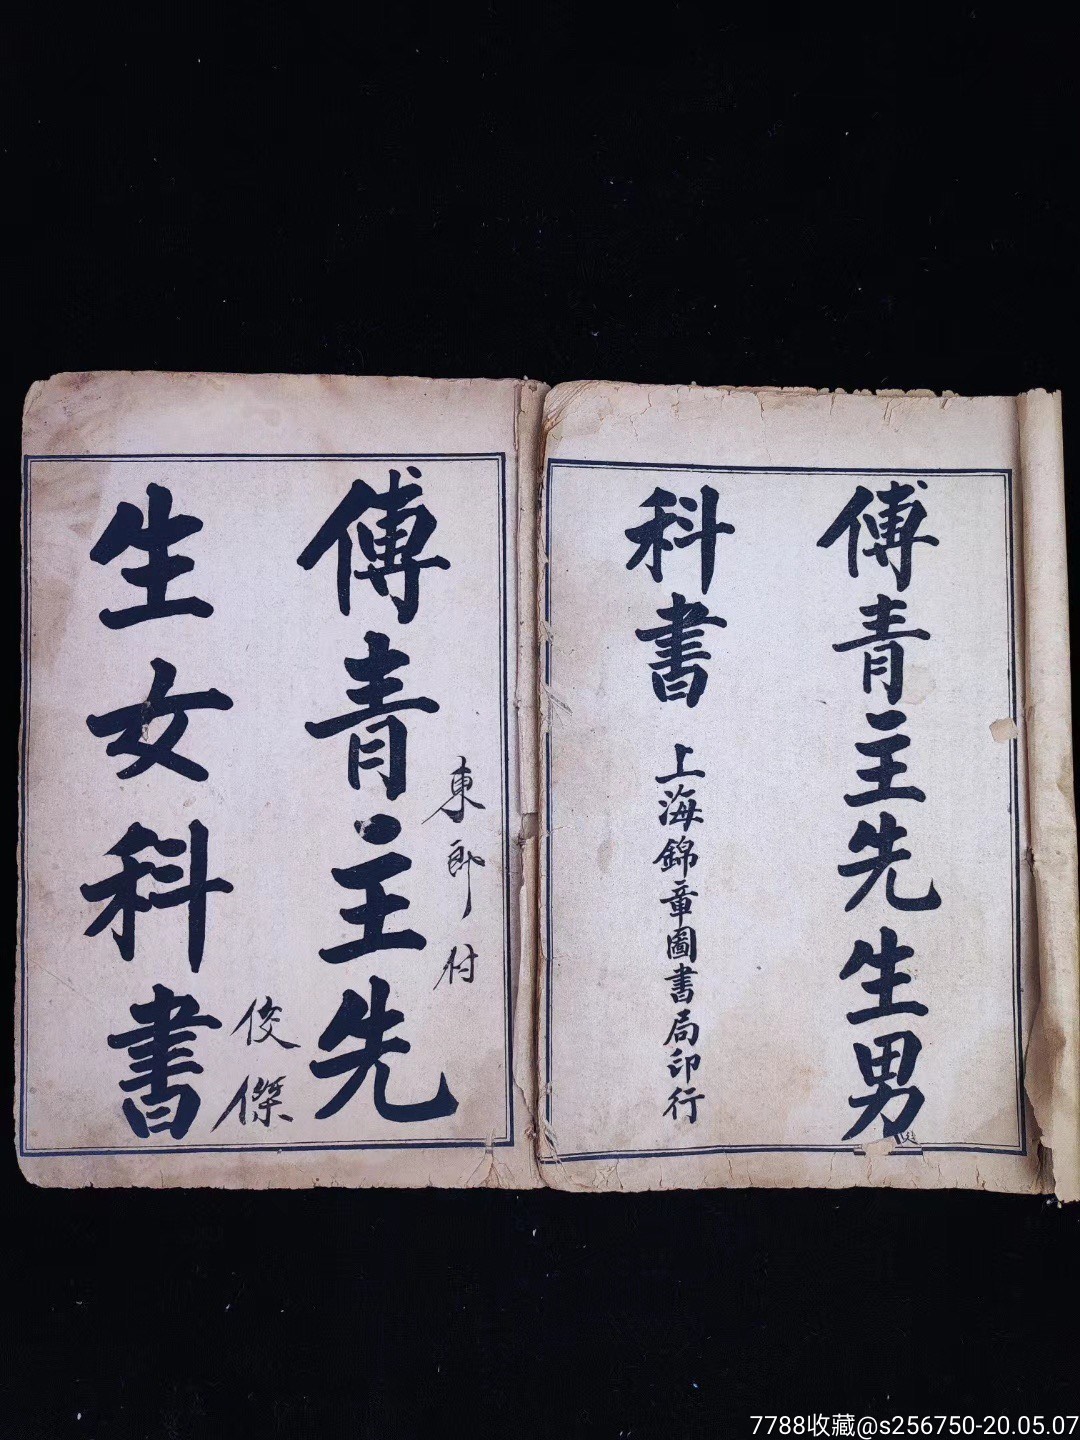 傅青主先生男
科書 上海錦章圖書局印行
傅青主先
生女科書
東郎付
俊傑
7788收藏@s256750-20.05.07